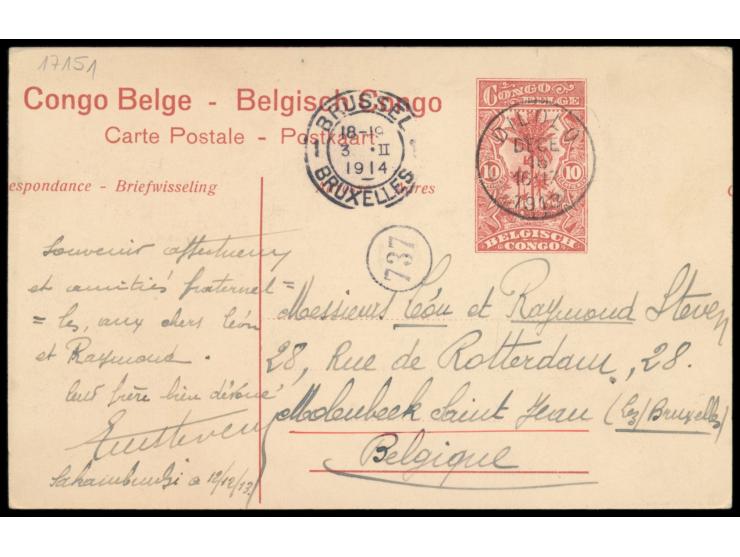 17151
Congo Belge - Belgisch Congo
Carte Postale - Postkaart
espondance - Briefwisseling
CONGO BELGE
10 10
BELGISCH CONGO
DILOLO
DECE
16
1913
BRUSSEL
18-19
3 II
1914
BRUXELLES
737
Souvenir affectueux
et amitiés fraternel=
=les, aux chers Léon
et Raymond.
leur frère bien dévoué
Sakambundji a 12/12/13
Messieurs Léon et Raymond Steven
28, Rue de Rotterdam, 28.
Molenbeek Saint Jean (lez/Bruxelles)
Belgique